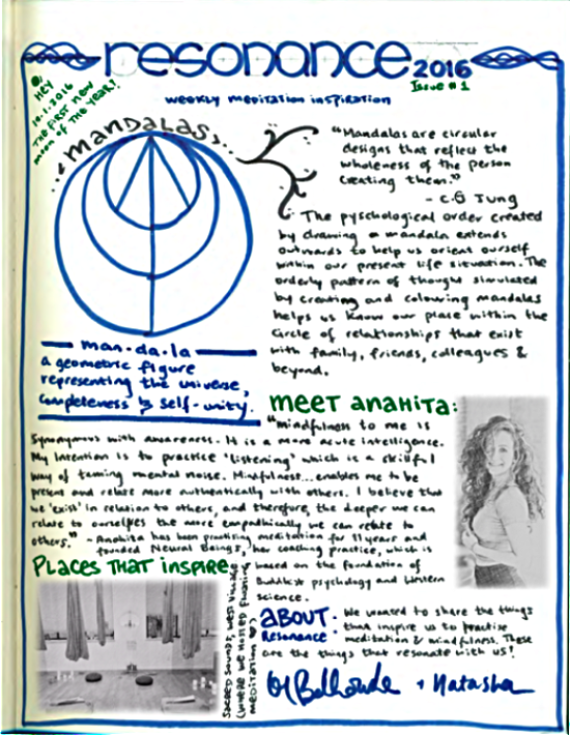 resonance 2016
Issue #1
weekly meditation inspiration
HEY
10.1.2016
THE FIRST NEW
moon of THE YEAR!
...MANDALAS...
"Mandalas are circular
designs that reflect the
wholeness of the person
creating them."
- C.G Jung
The pyschological order created
by drawing a mandala extends
outwards to help us orient ourself
within our present life situation. The
orderly pattern of thought simulated
by creating and colouring mandalas
helps us know our place within the
circle of relationships that exist
with family, friends, colleagues &
beyond.
man-da-la
a geometric figure
representing the universe,
completeness & self-unity.
MEET ANAHITA:
"mindfulness to me is
synonymous with awareness. It is a more acute intelligence.
My intention is to practice 'listening' which is a skillful
way of taming mental noise. Mindfulness... enables me to be
present and relate more authentically with others. I believe that
we 'exist' in relation to others, and therefore, the deeper we can
relate to ourselves the more empathically we can relate to
others." - Anahita has been practising meditation for 11 years and
founded Neural Beings, her coaching practice, which is
based on the foundation of
Buddhist psychology and Western
science.
PLACES THAT INSPIRE
SACRED SOUNDS, WEST VILLAGE
(WHERE WE HOSTED
MEDITATION
ABOUT
Resonance
· We wanted to share the things
that inspire us to practise
meditation & mindfulness. These
are the things that resonate with us!
+ Natasha